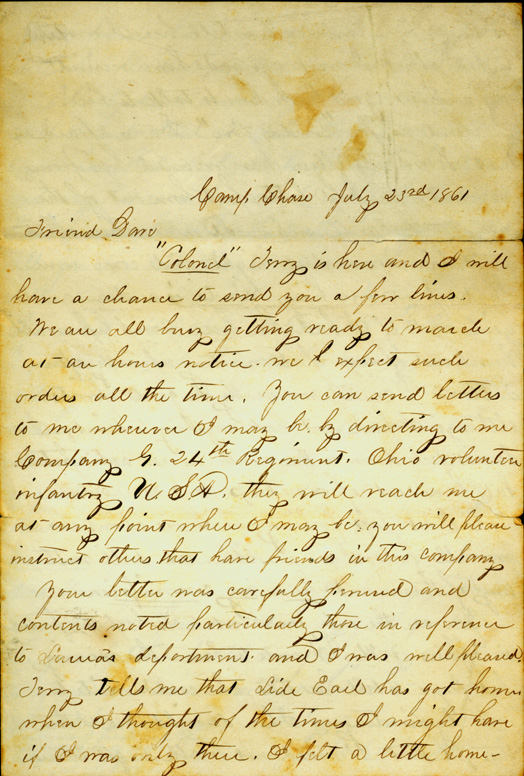 Camp Chase July 23rd 1861
Friend Dave
"Colonel" Terry is here and I will
have a chance to send you a few lines.
We are all busy getting ready to march
at an hours notice. we expect such
orders all the time. You can send letters
to me wherever I may be. by directing to me
Company G. 24th Regiment. Ohio volunteer
infantry U.S.A. they will reach me
at any point where I may be. you will please
instruct others that have friends in this company
Your letter was carefully perused and
contents noted particularly those in reference
to deportment and I was well pleased.
Terry tells me that Lide Earl has got home
when I thought of the times I might have
if I was only there. I felt a little home-